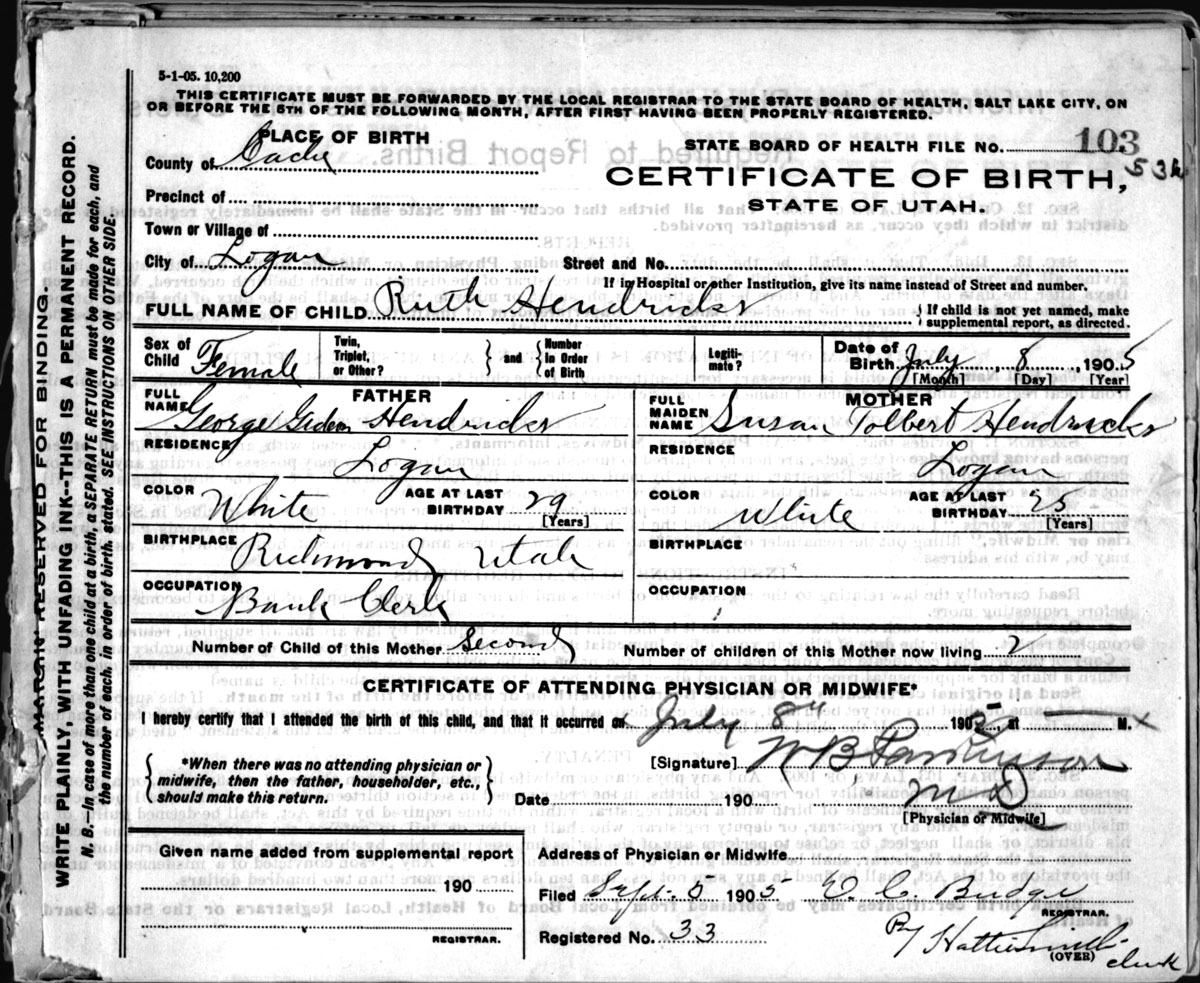 5-1-05. 10,200
THIS CERTIFICATE MUST BE FORWARDED BY THE LOCAL REGISTRAR TO THE STATE BOARD OF HEALTH, SALT LAKE CITY, ON
OR BEFORE THE 5TH OF THE FOLLOWING MONTH, AFTER FIRST HAVING BEEN PROPERLY REGISTERED.
PLACE OF BIRTH
STATE BOARD OF HEALTH FILE NO. 103
County of Cache
CERTIFICATE OF BIRTH,
Precinct of
STATE OF UTAH.
Town or Village of
City of Logan Street and No.
If in Hospital or other Institution, give its name instead of Street and number.
FULL NAME OF CHILD Ruth Hendricks { If child is not yet named, make
supplemental report, as directed.
Sex of Child Female Twin, Triplet, or Other? } and { Number In Order of Birth Legiti-mate? Date of Birth July 8, 1905
[Month] [Day] [Year]
FATHER MOTHER
FULL NAME George Gideon Hendricks FULL MAIDEN NAME Susan Tolbert Hendricks
RESIDENCE Logan RESIDENCE Logan
COLOR White AGE AT LAST BIRTHDAY 29 [Years] COLOR White AGE AT LAST BIRTHDAY 25 [Years]
BIRTHPLACE Richmond Utah BIRTHPLACE
OCCUPATION Bank Clerk OCCUPATION
Number of Child of this Mother Second Number of children of this Mother now living 2
CERTIFICATE OF ATTENDING PHYSICIAN OR MIDWIFE*
I hereby certify that I attended the birth of this child, and that it occurred on July 8" 1905, at M.
{ *When there was no attending physician or
midwife, then the father, householder, etc.,
should make this return. }
[Signature] W B Parkinson
Date 190 M D
[Physician or Midwife]
Given name added from supplemental report
190
REGISTRAR.
Address of Physician or Midwife
Filed Sept. 5 1905 E. C. Budge
REGISTRAR.
Registered No. 33 By Hattie Smith
(OVER) clerk
MARGIN RESERVED FOR BINDING.
WRITE PLAINLY, WITH UNFADING INK--THIS IS A PERMANENT RECORD.
N. B.--In case of more than one child at a birth, a SEPARATE RETURN must be made for each, and
the number of each, in order of birth, stated. SEE INSTRUCTIONS ON OTHER SIDE.